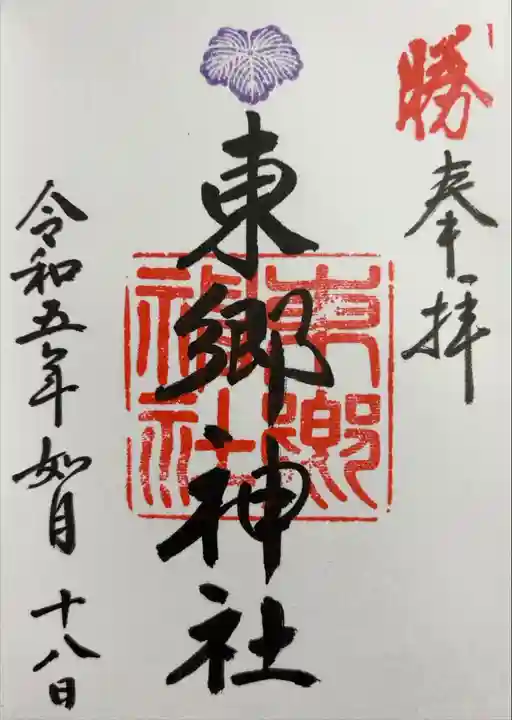 勝
奉拝
東郷神社
東郷神社
令和五年如月十八日